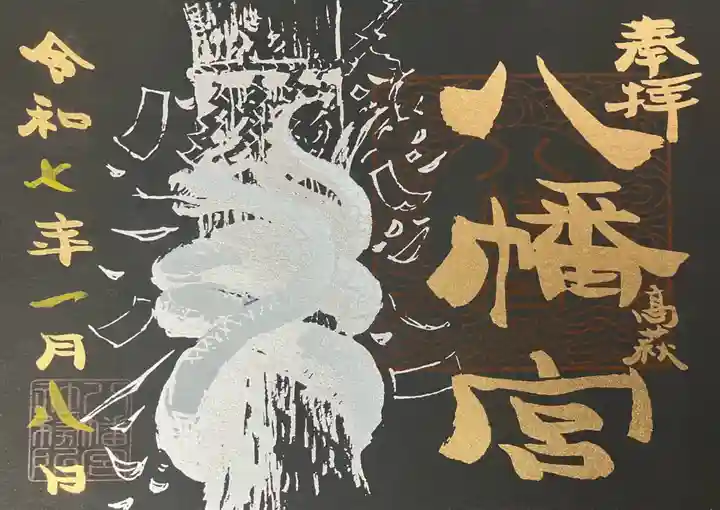 奉拝
八幡宮
高萩
令和七年一月八日